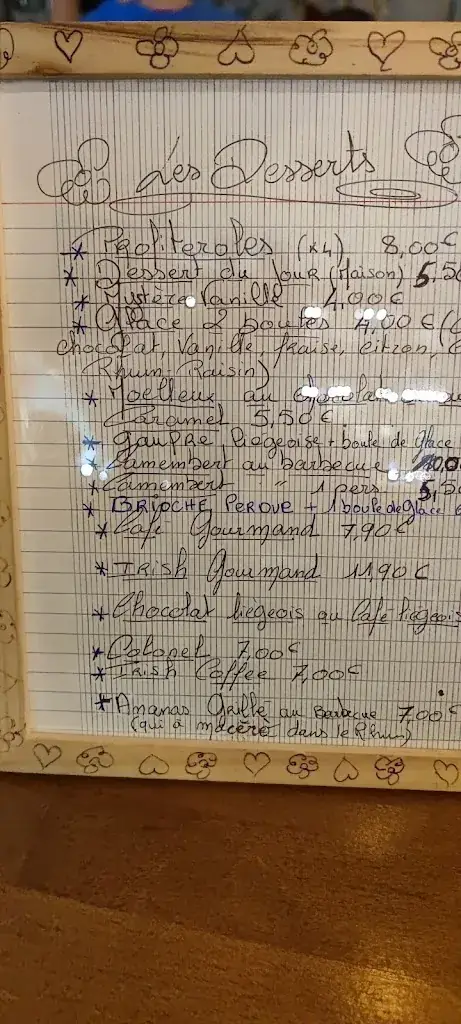 Les Desserts
* Profiteroles (x4) 8,00€
* Dessert du Jour (Maison) 5,50
* Mystère Vanille 4,00€
* Glace 2 boules 4,00€ (
chocolat, Vanille, fraise, citron,
Rhum-Raisin)
* Moelleux au chocolat
Caramel 5,50€
* gaufRe liégeoise + boule de Glace
* Camembert au barbecue 10,0
* Camembert " 1 pers 5,50
* BRIOCHE PERDUE + 1 boule de glace
* Café Gourmand 7,90€
* IRish Gourmand 11,90€
* Chocolat liégeois ou Café liégeois
* Colonel 7,00€
* IRish Coffee 7,00€
* Ananas Grillé au Barbecue 7,00€
(qui à macéré dans le Rhum)